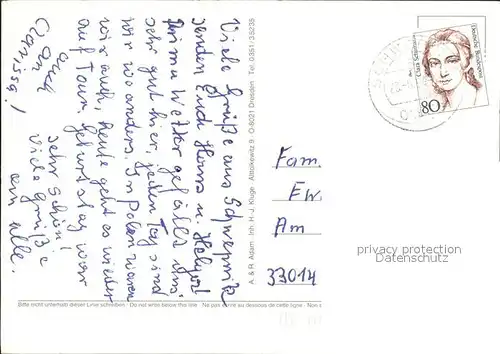 Viele Grüße aus Schwepnitz
senden Euch Horst u. Helga!
Prima Wetter gefällt uns
sehr gut hier, jeden Tag sind
wir wo anders. In Polen waren
wir auch, heute geht es wieder
auf Tour. Geburtstag war
sehr schön!
Viele Grüße
an alle.
auch
an
Clarissa!
A. & R. Adam · Inh. H.-J. Kluge · Altlockewitz 9 · O-8021 Dresden · Tel. 0351/35235
Clara Schumann
Deutsche Bundespost
80
Fam.
Ew.
Am
33014
privacy protection
Datenschutz
Bitte nicht unterhalb dieser Linie schreiben · Do not write below this line · Ne pas écrire au dessous de cette ligne · Non s